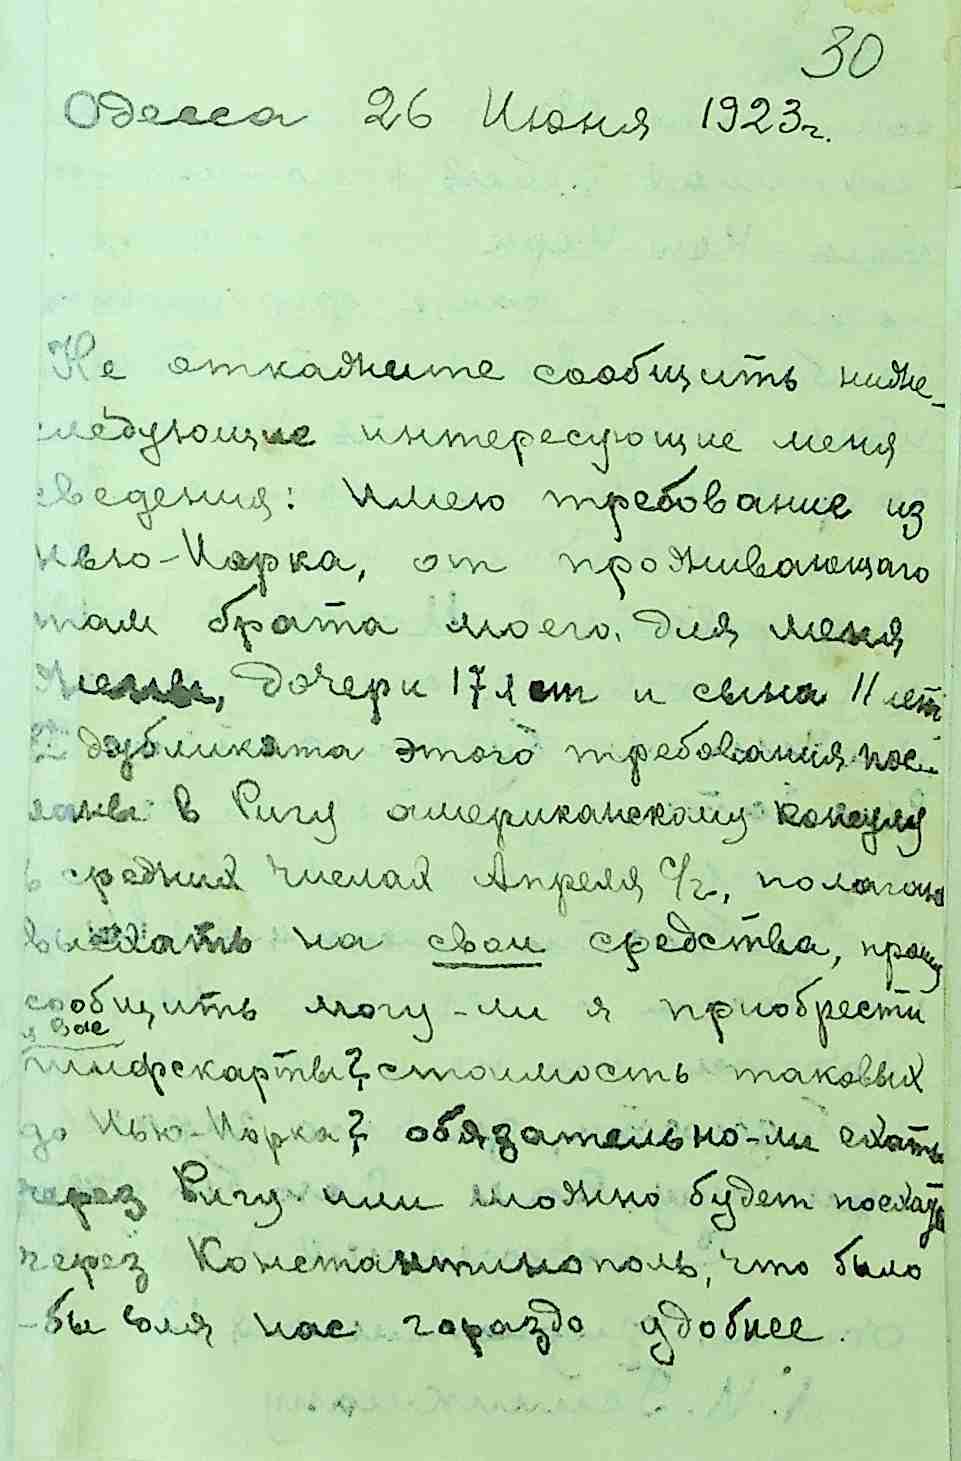 30
Одесса 26 Июня 1923г.
Не откажите сообщить ниже-
следующие интересующие меня
сведения: Имею требование из
Нью-Иорка, от проживающаго
там брата моего, для меня
жены, дочери 17 лет и сына 11 лет
дубликата этого требования пос-
ланы в Ригу американскому консулу
в средних числах Апреля с/г., полагаю
выехать на свои средства, прошу
сообщить могу-ли я приобрести
у вас
шифскарты? стоимость таковых
до Нью-Иорка? обязательно-ли ехать
через Ригу или можно будет поехать
через Константинополь, что было
-бы для нас гораздо удобнее.